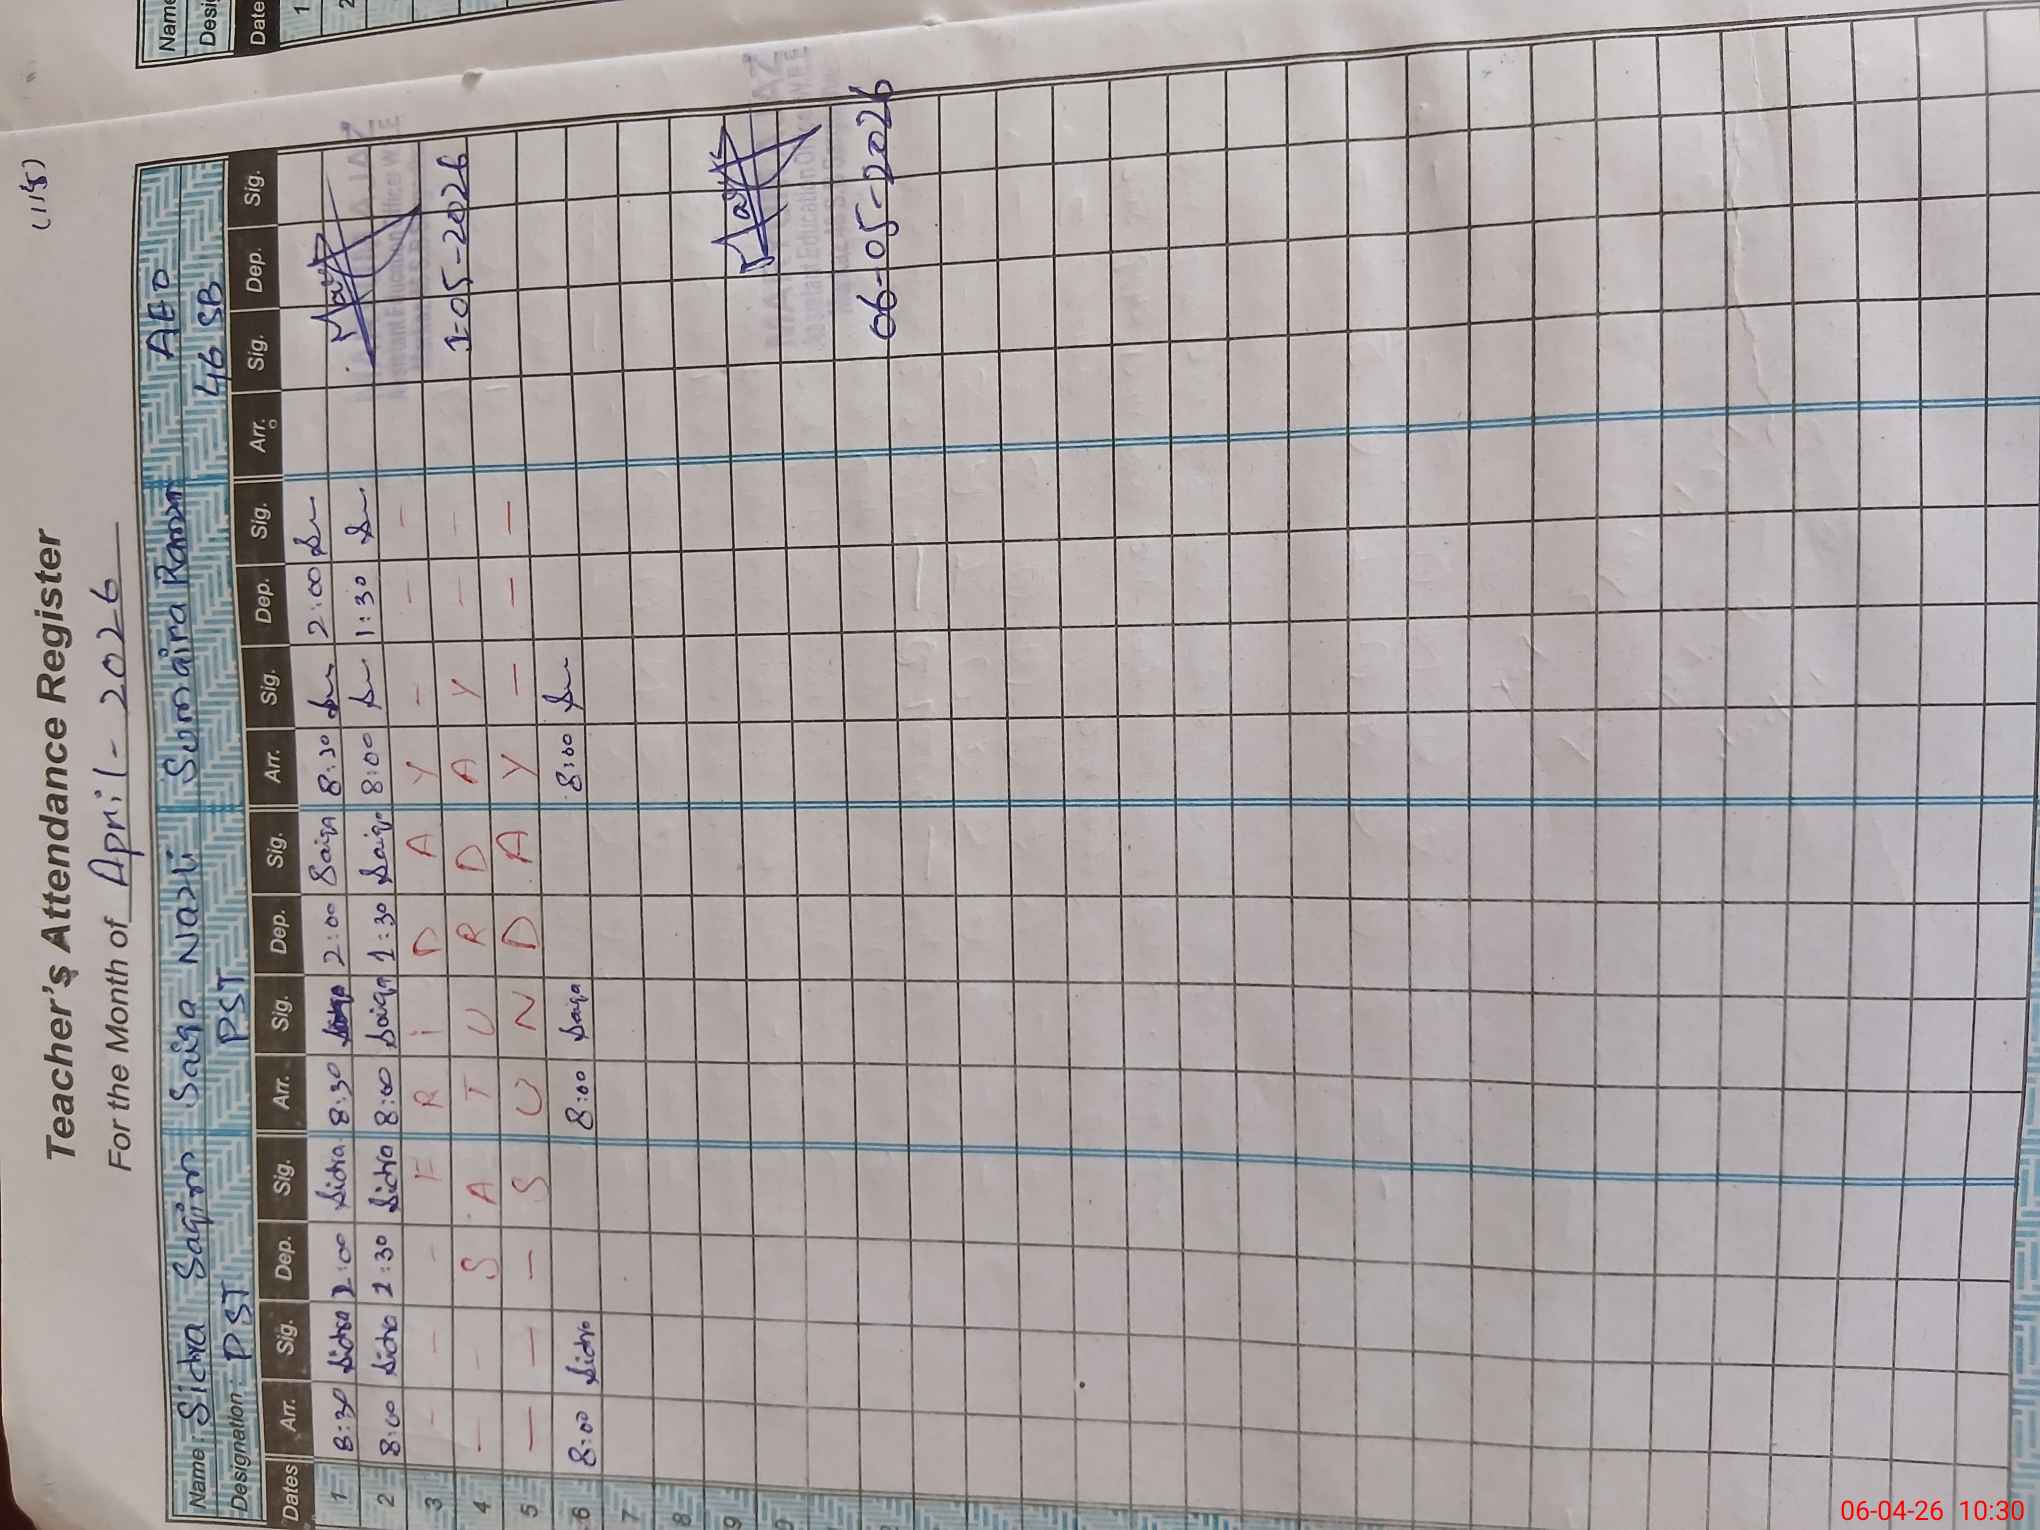 (118)
Teacher's Attendance Register
For the Month of April - 2026
Name: Sidra Saqim Saiqa Nazli Sumaira Ramzan AEO
Designation: PST PST 46 SB
Dates Arr. Sig. Dep. Sig. Arr. Sig. Dep. Sig. Arr. Sig. Dep. Sig. Arr. Sig. Dep. Sig.
1 8:30 Sidra 2:00 Sidra 8:30 Saiqa 2:00 Saiqa 8:30 2:00
2 8:00 Sidra 1:30 Sidra 8:00 Saiqa 1:30 Saiqa 8:00 1:30
3 - - - F R i D A Y - - -
1-05-2026
4 - - S A T U R D A Y - -
5 - - - S U N D A Y - - -
6 8:00 Sidra 8:00 Saiqa 8:00
7
8
9
06-05-2026
Name
Desi
Date
1
2
06-04-26 10:30